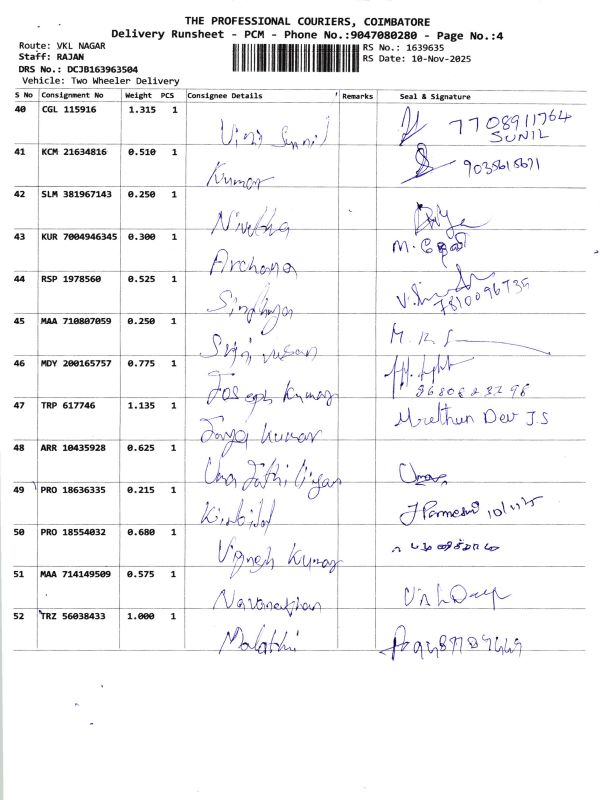 THE PROFESSIONAL COURIERS, COIMBATORE
Delivery Runsheet - PCM - Phone No.:9047080280 - Page No.:4
Route: VKL NAGAR
RS No.: 1639635
Staff: RAJAN
RS Date: 10-Nov-2025
DRS No.: DCJB163963504
Vehicle: Two Wheeler Delivery
S No Consignment No Weight PCS Consignee Details Remarks Seal & Signature
40 CGL 115916 1.315 1 7708911764
SUNIL
41 KCM 21634816 0.510 1 Kumar
42 SLM 381967143 0.250 1 Nivetha
43 KUR 7004946345 0.300 1 Archana M.
44 RSP 1978560 0.525 1 Sindhuja 7810096735
45 MAA 710807059 0.250 1
46 MDY 200165757 0.775 1 Joseph Kumar
47 TRP 617746 1.135 1 Jaya Kumar Dev J.S
48 ARR 10435928 0.625 1 Uma
49 PRO 18636335 0.215 1 10/11/25
50 PRO 18554032 0.680 1 Vignesh Kumar
51 MAA 714149509 0.575 1
52 TRZ 56038433 1.000 1 Malathi